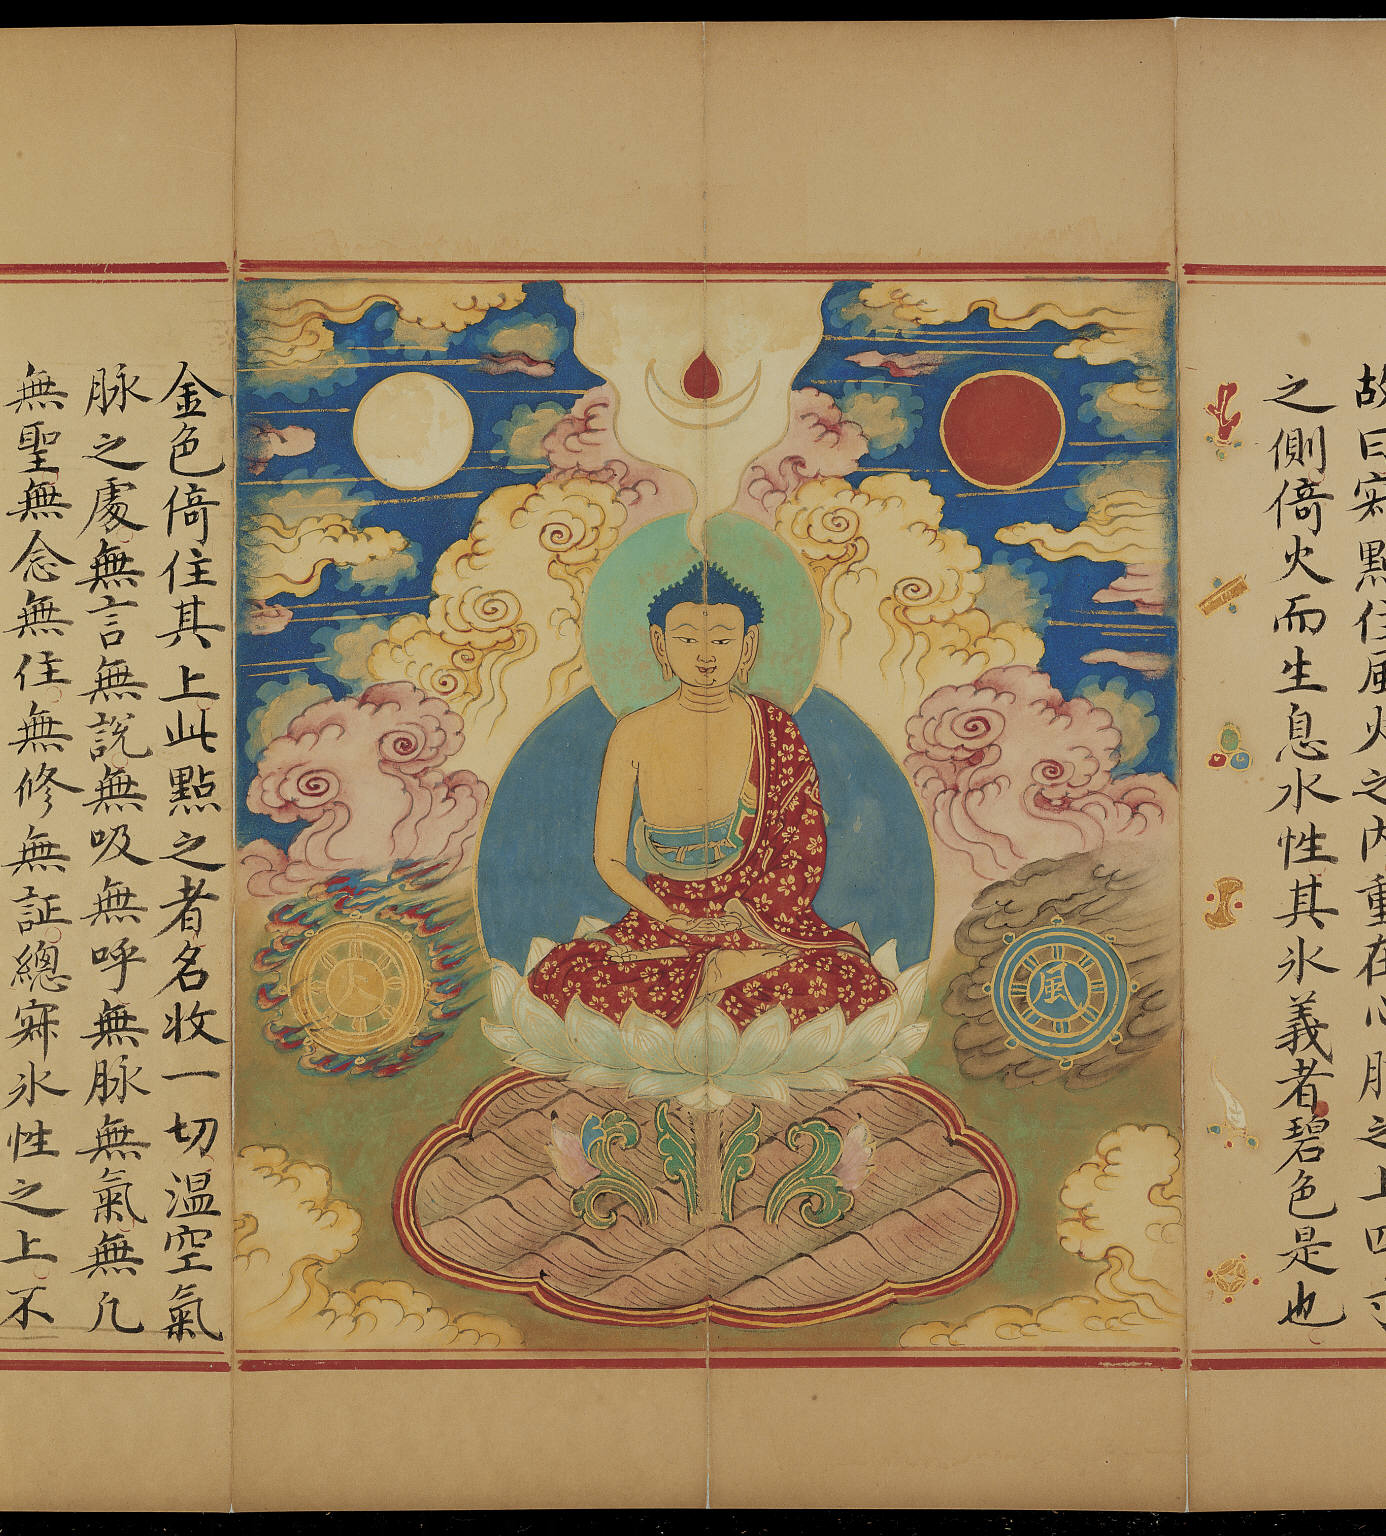 故曰寂點住風火之內重在心脉之上四寸
之側倚火而生息水性其氷義者碧色是也
火
風
金色倚住其上此點之者名收一切温空氣
脉之處無言無說無吸無呼無脉無氣無凢
無聖無念無住無修無証總寂氷性之上不